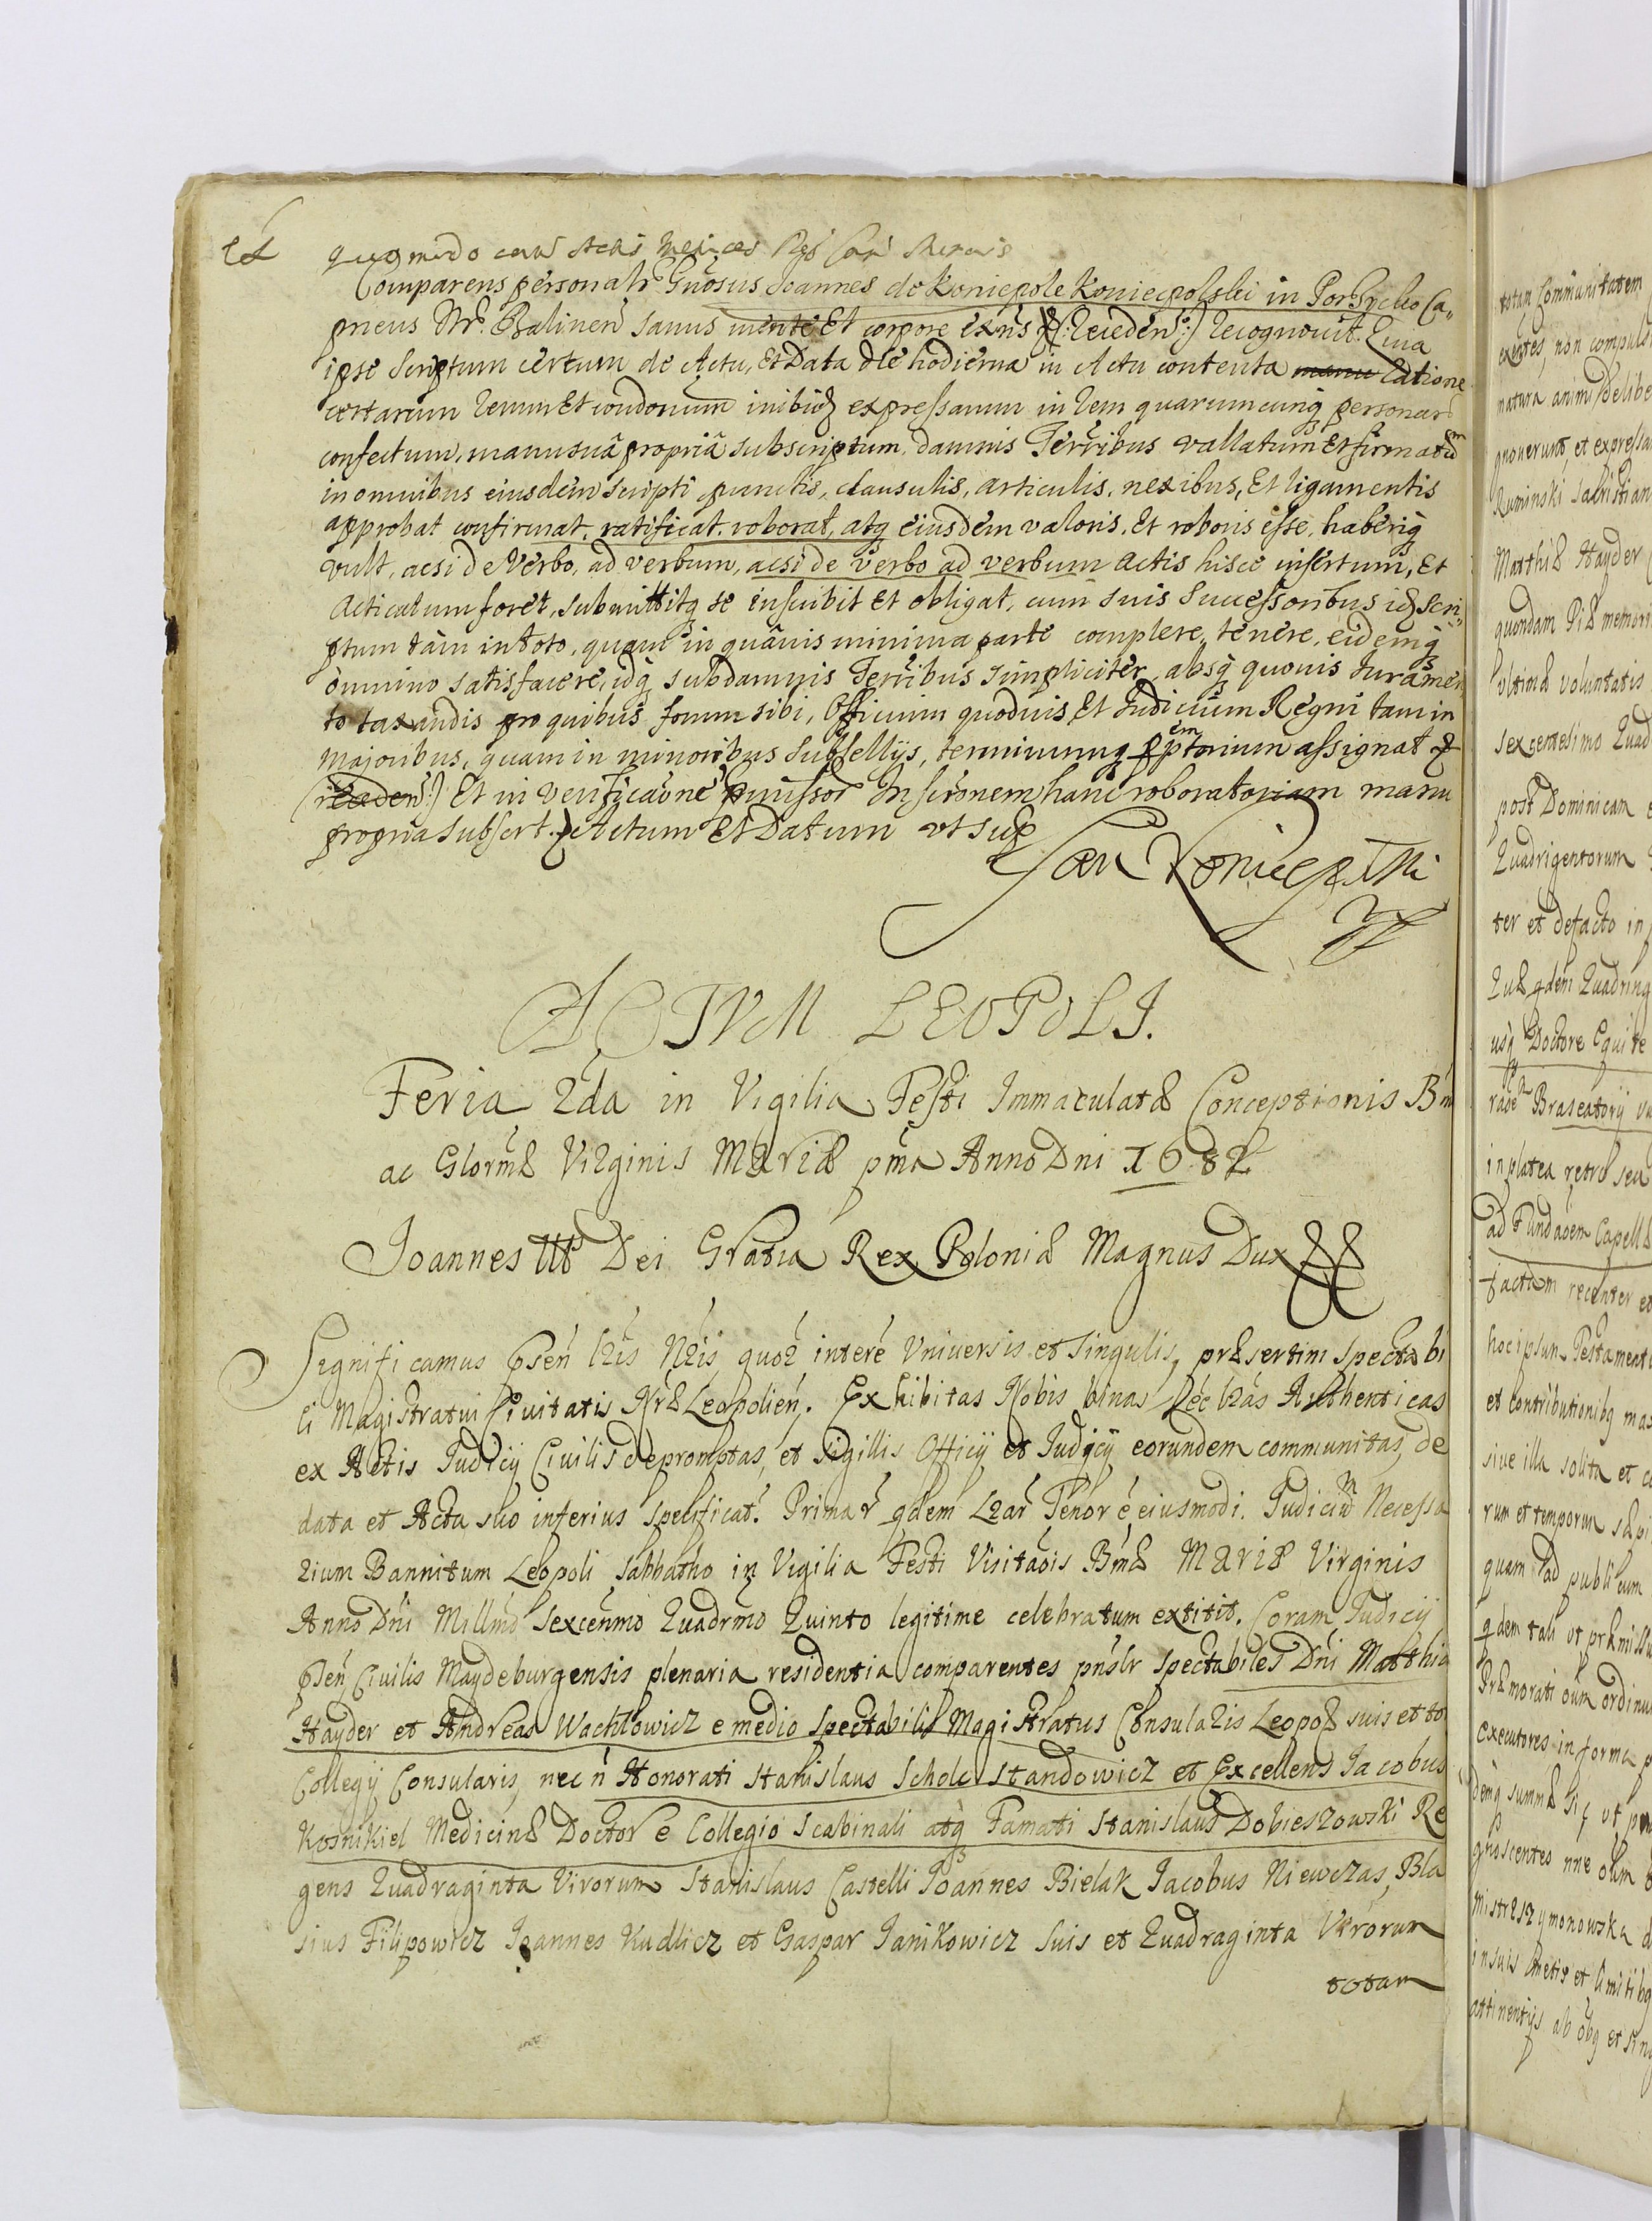 et quomodo
Comparens personalr Gnosus Joannes de Koniecpole Koniecpolski in Ca„
pneus Nr. Balinen sanus mente Et corpore exns recognovit. Quia
ipse scriptum certum de Actu, Et Data die hodierna in Actu contenta manu ratione
certarum rerum Et condonum inibiq expressarum in rem quarumcunq personar
confectum, manu suâ propriâ subscriptum, damnis Terribus vallatum Et firmatum
in omnibus eiusdem scripti punctis, clausulis, articulis, nexibus, Et ligamentis
approbat confirmat, ratificat, roborat, atq eiusdem valoris, Et roboris esse, haberiq
vult, acsi de Verbo, ad verbum, acsi de verbo ad verbum actis hisce insertum, Et
Acticatum foret, submittitq se inscribit Et obligat, cum suis Successoribus idq scri„
ptum tàm in toto, quam in quâuis minima parte complere, tenere, eidemq
omnino satisfacere, idq sub damnis Terribus simpliciter, absq quouis Juramen
to taxandis pro quibus forum sibi, Officium quoduis Et Judicium Regni tam in
majoribus, quam in minoribus Subsellijs, terminumq assignat
Et in verificaone Inscronem hanc roboratoriam manu
propria subscrt. Actum Et Datum vt sup
Jan Koniecpolski
ACTVM LEOPOLI.
Feria 2da in Vigilia Festi Immaculatæ Conceptionis Bm
ac Glormæ Virginis Mariæ pma Anno Dni 1682
Joannes IIIs Dei Gratia Rex Poloniæ Magnus Dux
Significamus psen lris Nris quor intere Vniuersis et singulis, præsertim specta bi
li Magistratui Ciuitatis Nræ Leopolien. Exhibitas Nobis binas lras Authenticas
ex Actis Judicij Ciuilis depromptas, et sigillis Officij et Judicij eorundem communitas, de
data et Acta suo inferius specificat. Primar qdem Lrar Tenor é eiusmodi. Judicium Necessa
rium Bannitum Leopoli Sabbatho in Vigilia Festi Visitaois Bmæ Mariæ Virginis
Anno Dni Millmo Sexcenmo Quadrmo Quinto legitime celebratum extitit. Coram Judicij
psen Ciuilis Maydeburgensis plenaria residentia comparentes pnslr spectabiles Dni Matthia
Hayder et Andreas Wachlowicz e medio spectabilis Magistratus Consularis Leopol suis et to
Collegij Consularis, nec n Honorati Stanislaus Scholc Standowicz et Excellens Jacobus
Kosnikiel Medicinæ Doctor e Collegio Scabinali atq Famati Stanislaus Dobieszowski Re
gens Quadraginta Virorum Stanislaus Castelli Joannes Bielak Jacobus Niewczas, Bla
sius Filipowicz Joannes Kudlicz et Gaspar Janikowicz Suis et Quadraginta Virorum
totam
totam Communitatem
exntes, non compuls
matura animi delibe
gnouerunt, et expressa
Ruminski
Matthiæ Hayder
quondam Piæ memori
vltimæ voluntatis
sexgentesimo Quad
post Dominicam
Quadrigentorum
ter et defacto in
Quæ qdem Quadring
usq Doctore Equite
Braseatorij
in platea retro sea
ad Fundaoem Capellæ
factum recenter et
hoc ipsum Testament
et contributionibq
siue illa solita et
rum et temporum
quam ad publicum
qdem tali vt præmiss
Præmorati oum ordinu
executores in forma p
demq summæ
gnoscentes nne oum
d
in suis metis et limitibq
attinentijs ab obq et sing